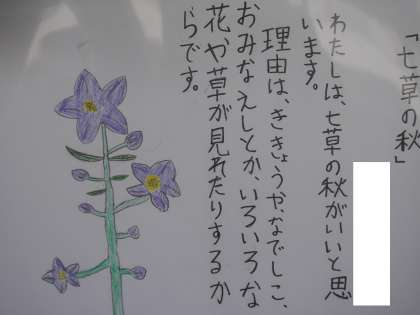 「七草の秋」
わたしは、七草の秋がいいと思
います。
理由は、ききょうや、なでしこ、
おみなえしとか、いろいろな
花や草が見れたりするか
らです。